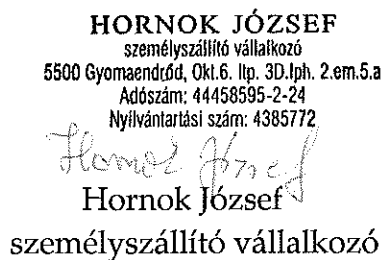 HORNOK JÓZSEF
személyszállító vállalkozó
5500 Gyomaendrőd, Okt.6. ltp. 3D.lph. 2.em.5.a
Adószám: 44458595-2-24
Nyilvántartási szám: 4385772
Hornok József
Hornok József
személyszállító vállalkozó